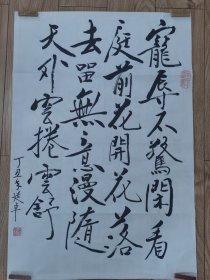 寵辱不驚閑看
庭前花開花落
去留無意漫隨
天外雲捲雲舒
丁丑年